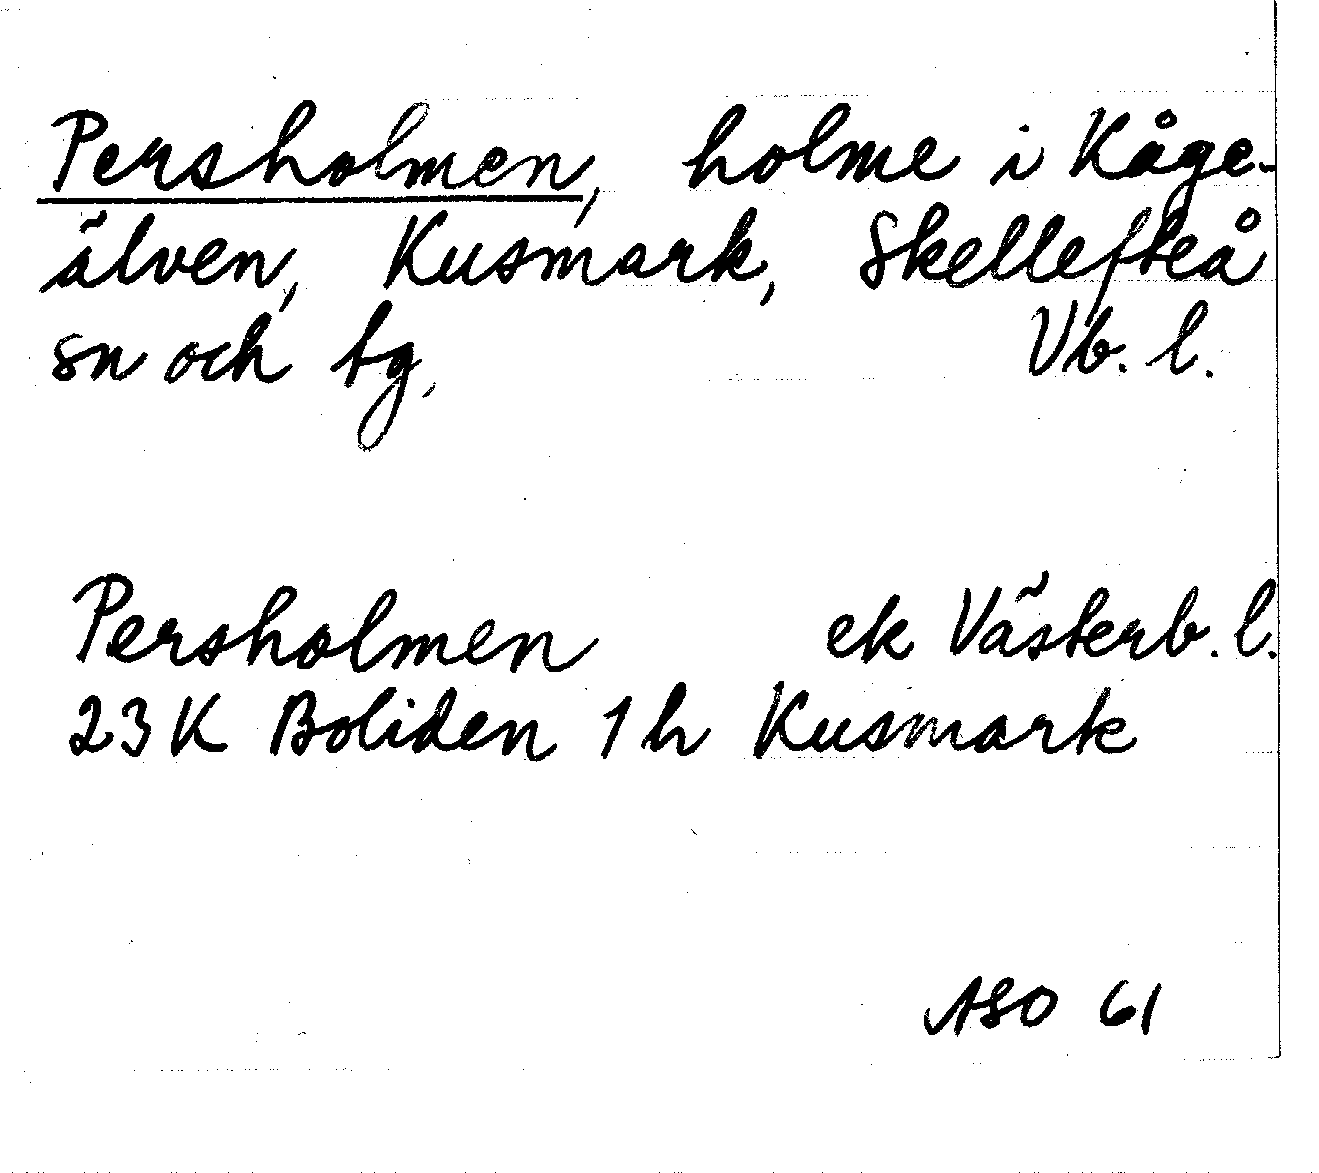 Persholmen, holme i Kåge-
älven, Kusmark, Skellefteå
sn och tg, Vb. l.
Persholmen ek Västerb. l.
23K Boliden 1h Kusmark
ASO 61